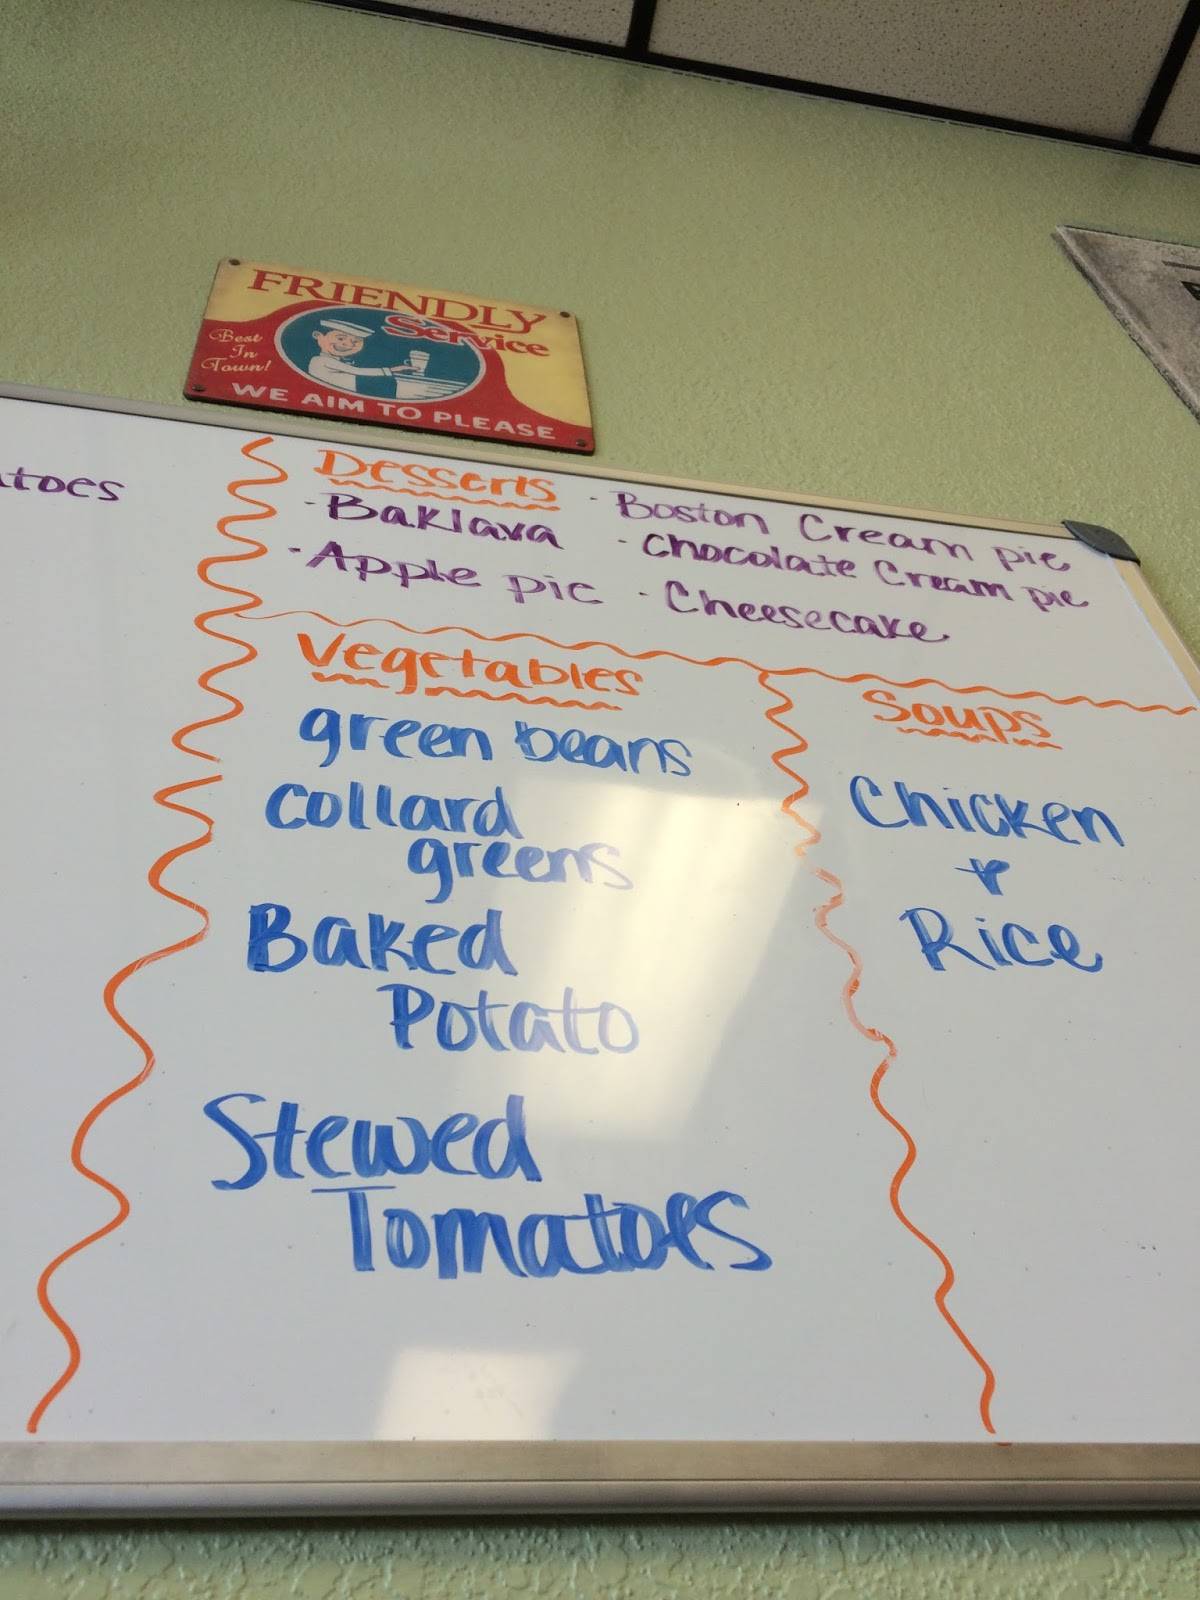 FRIENDLY
Service
Best
In
Town!
WE AIM TO PLEASE
Desserts
· Baklava
· Apple pie
· Boston Cream pie
· Chocolate Cream pie
· Cheesecake
Vegetables
green beans
Collard
greens
Baked
Potato
Stewed
Tomatoes
Soups
Chicken
&
Rice